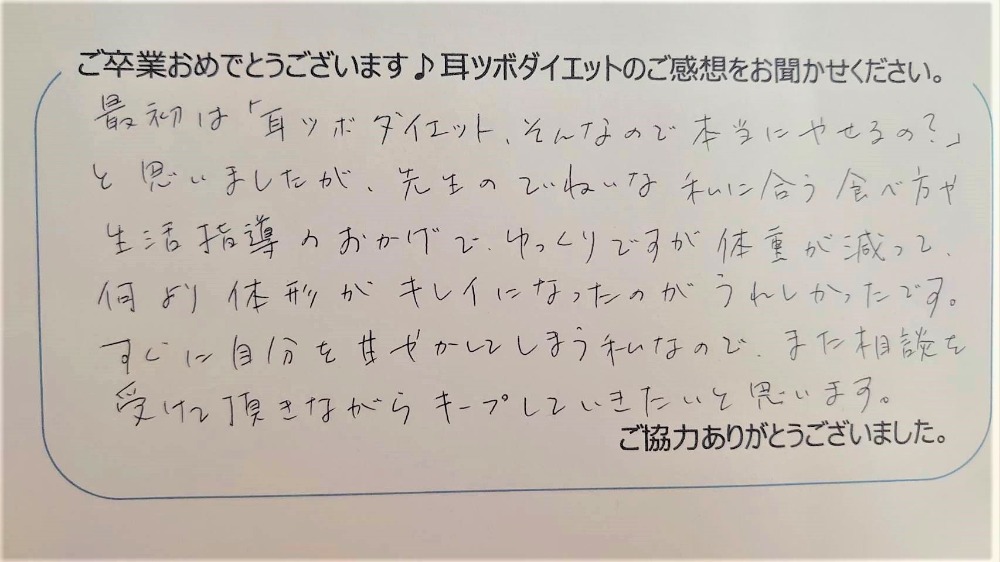 ご卒業おめでとうございます♪耳ツボダイエットのご感想をお聞かせください。
最初は「耳ツボダイエット、そんなので本当にやせるの?」
と思いましたが、先生のていねいな私に合う食べ方や
生活指導のおかげで、ゆっくりですが体重が減って、
何より体形がキレイになったのがうれしかったです。
すぐに自分を甘やかしてしまう私なので、また相談を
受けて頂きながらキープしていきたいと思います。
ご協力ありがとうございました。